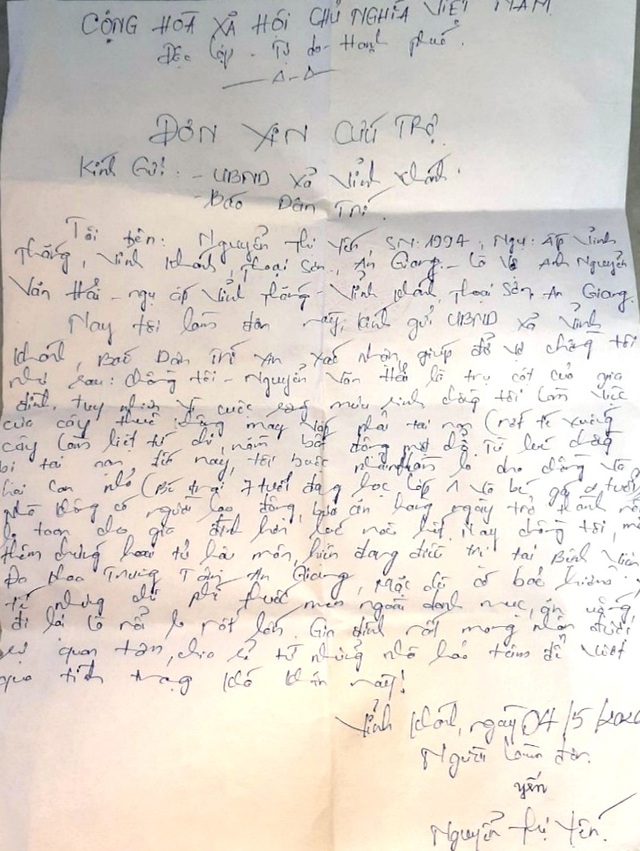 CỘNG HÒA XÃ HỘI CHỦ NGHĨA VIỆT NAM
Độc lập - Tự do - Hạnh phúc.
ĐƠN XIN CỨU TRỢ
Kính Gửi: - UBND xã Vĩnh Khánh.
- Báo Dân Trí.
Tôi tên: Nguyễn Thị Yến, SN: 1994, Ngụ: ấp Vĩnh
Thắng, Vĩnh Khánh, Thoại Sơn, An Giang. Là Vợ Anh Nguyễn
Văn Hải - ngụ ấp Vĩnh Thắng - Vĩnh Khánh, Thoại Sơn, An Giang
Nay tôi làm đơn này, kính gửi UBND xã Vĩnh
Khánh, Báo Dân Trí xin xác nhận, giúp đỡ về chồng tôi
như sau: Chồng tôi - Nguyễn Văn Hải là trụ cột của gia
đình, tuy nhiên vì cuộc sống mưu sinh chồng tôi làm việc
cưa cây thuê không may gặp phải tai nạn (rớt từ xuống
cây làm liệt tứ chi, nằm bất động một chỗ. Từ lúc chồng
bị tai nạn đến nay, tôi buộc phải lo cho chồng và
hai con nhỏ (Bé trai 7 tuổi đang học lớp 1 và bé gái 2 tuổi
nhà không có người lao động, bữa ăn hàng ngày trở thành nỗi
lo toan cho gia đình hơn lúc nào hết. Nay chồng tôi, mắc
thêm chứng hoại tử hậu môn, hiện đang điều trị tại Bệnh Viện
Đa khoa Trung Tâm An Giang, Mặc dù có bảo hiểm y
tế nhưng chi phí thuốc men ngoài danh mục, ăn uống,
đi lại là nỗi lo rất lớn. Gia đình rất mong nhận được
sự quan tâm, chia sẻ từ những nhà hảo tâm để vượt
qua tình trạng khó khăn này!
Vĩnh Khánh, ngày 04/5/2020
Người làm đơn.
yến
Nguyễn Thị Yến.